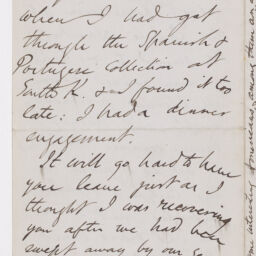 when I had got
through the Spanish &
Portugese Collection at
South K. & I found it too
late: I had a dinner
engagement.
It will go hard to have
you leave just as I
thought I was recovering
you after we had been
swept away by our so